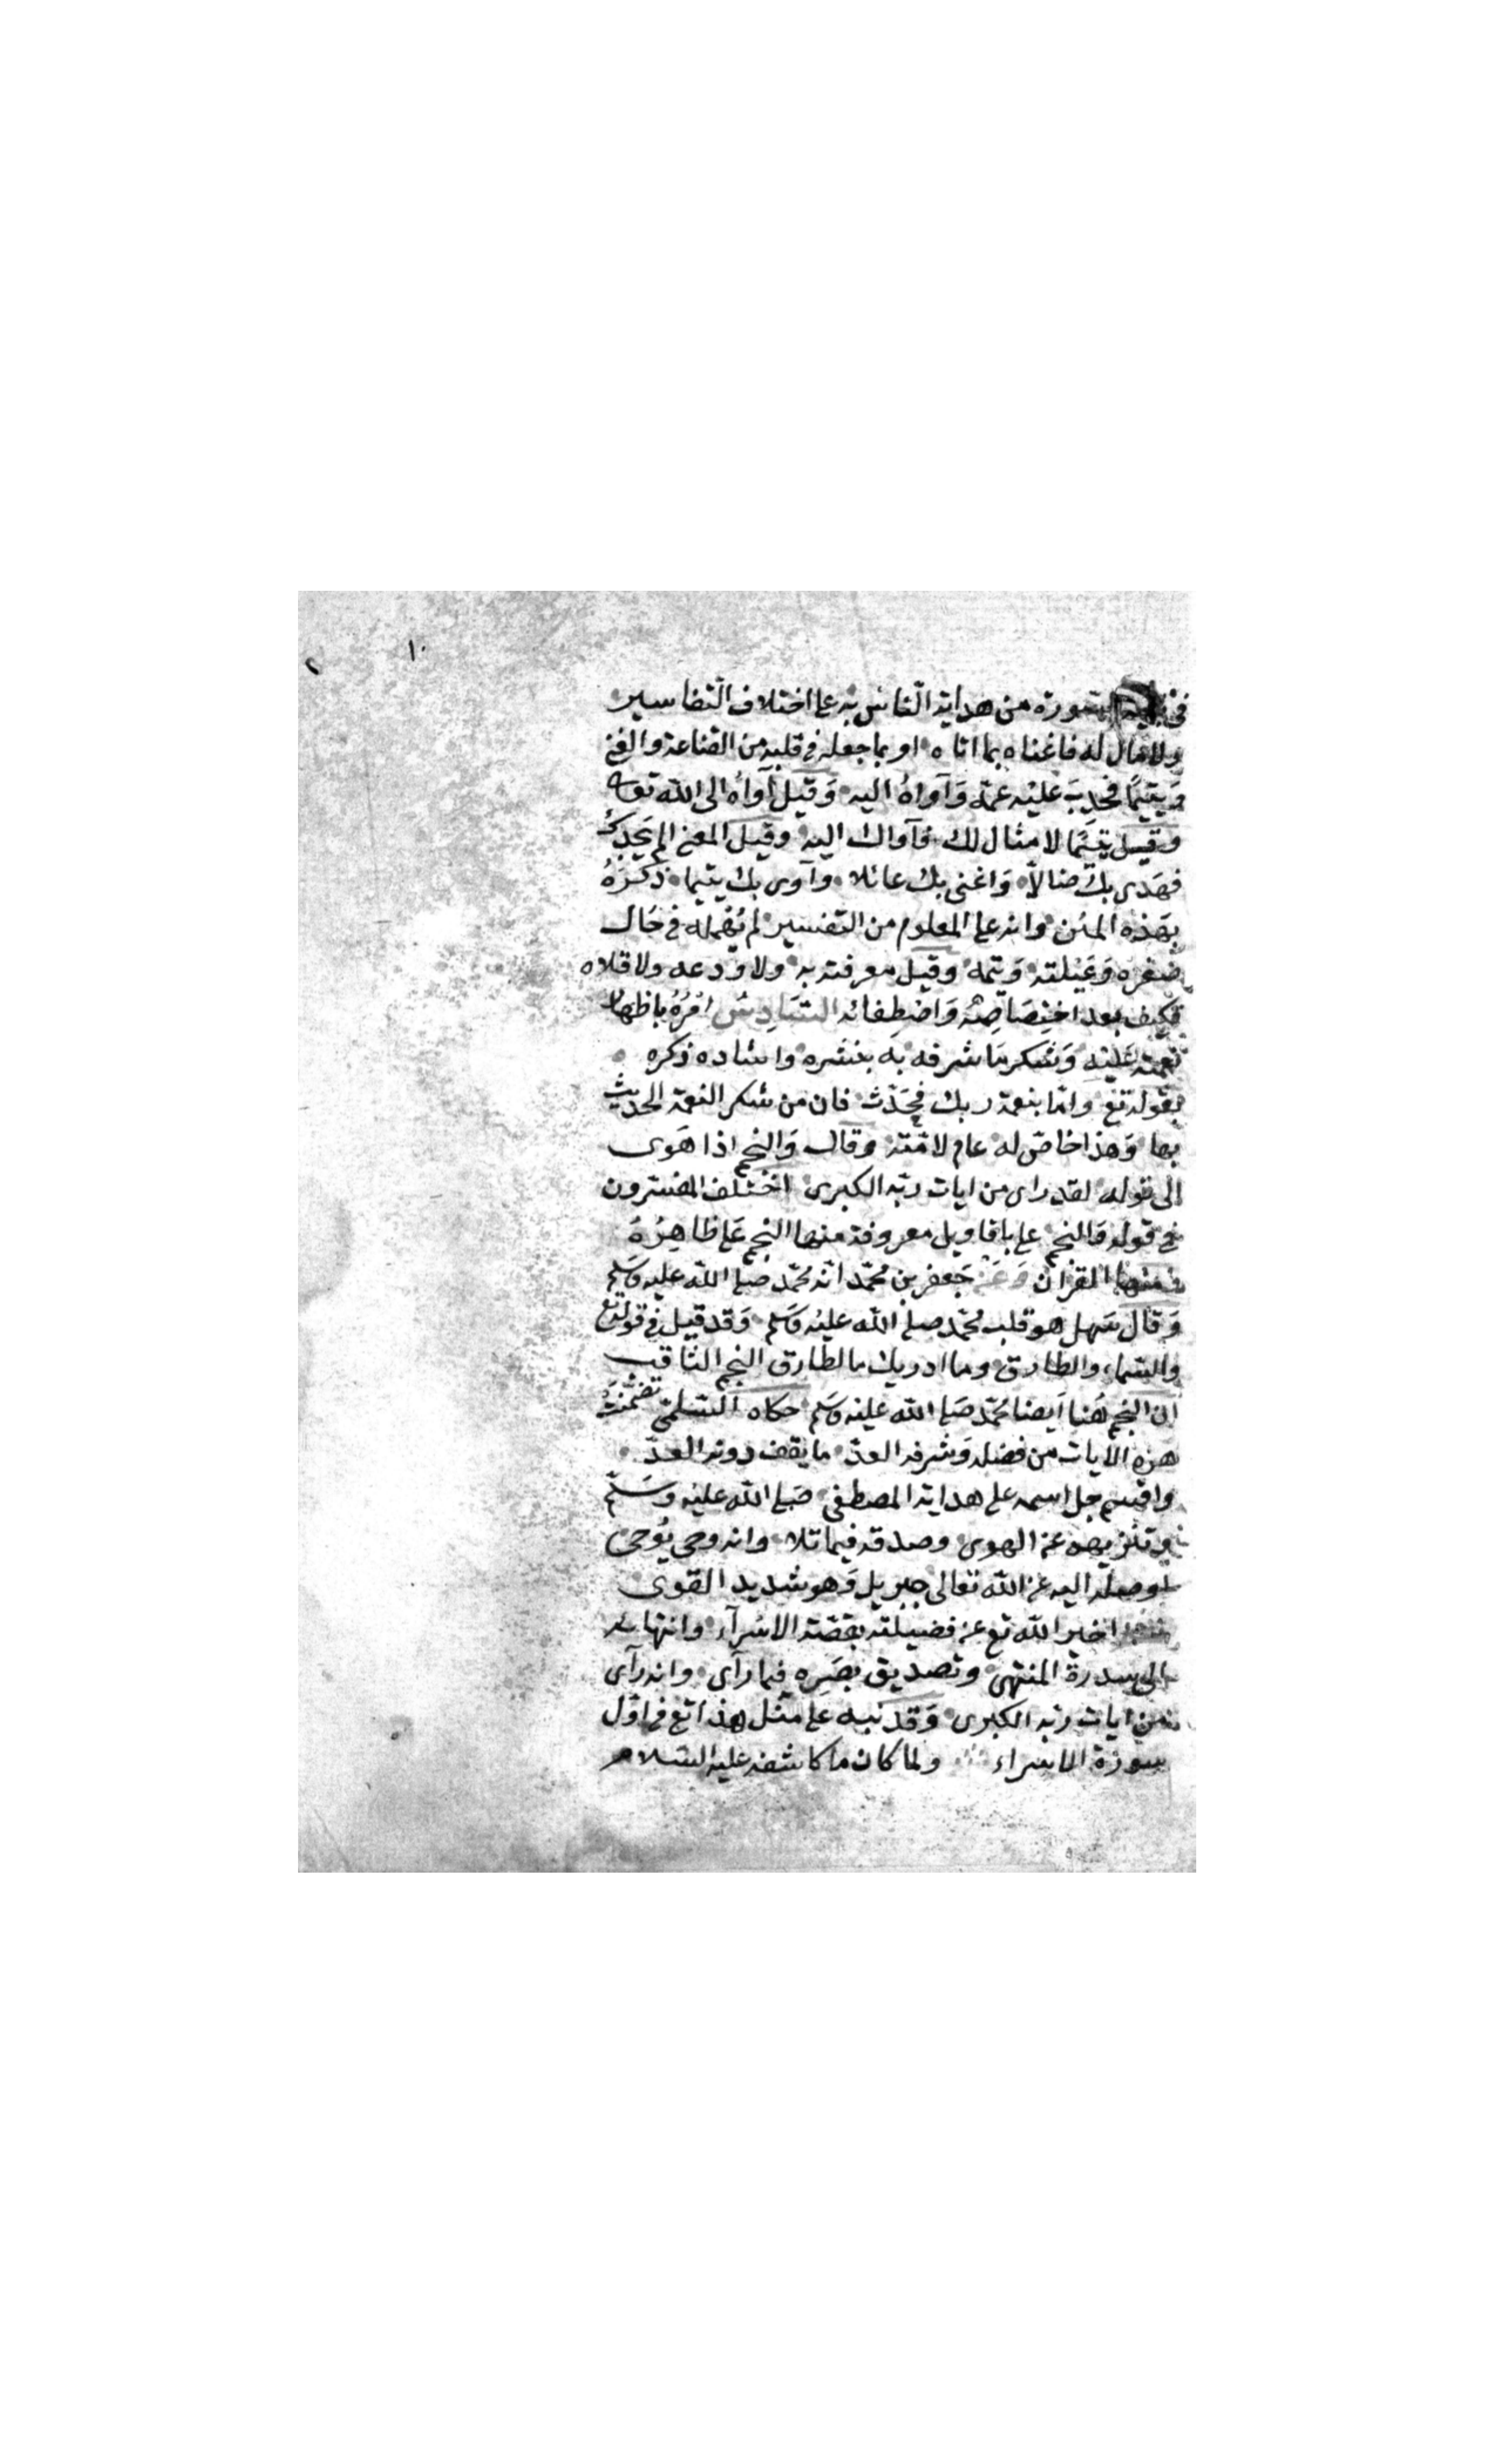 ١٠
السورة من هداية النّاس به على اختلاف التفاسير
ولا مال له فاغناه بما اتاه او بما جعله في قلبه من القناعة والغنى
وَيتيمًا فحدِبَ عليْه عمّه وَآواهُ اليه وَقيل آواه الى الله تعالى
وقيل يتيمًا لا مثال لك فآواك اليه وقيل المعنى الم يجدك
فهَدى بك ضالاًّ وَاغنى بك عائلا وآوى بك يتيما ذكّرهُ
بهَذه المنن وانه على المعلوم من التفسير لم يُهمله في حَال
صغره وَعَيلته وَيتمه وقيل معرفته به ولا ودعه ولا قلاه
فكيف بعد اختِصَاصِهُ وَاصْطِفائه السّادِسُ امْرُهُ باظهار
نعمته عَليْه وَشكر مَا شرفه به بنشره واشاده ذكره
بقوله تع وامّا بنعمة ربك فحَدّث فان من شكر النعمة الحديث
بها وَهذا خاصّ له عام لامّته وقال وَالنجم اذا هَوى
الى قوله لقد راى من ايات ربّه الكبرى اختلف المفسّرون
في قوله وَالنجم على باقاويل معروفة منها النجم عَلى ظاهِرُهُ
ومنها القران وَعَن جَعفر بن محمّد انّه محمّد صلى الله عليه وَسَلم
وَقال سَهل هو قلب محمّد صلى الله عليْه وَسَلم وَقد قيل في قوله تع
والسّماء والطارق وما ادريك ما لطارق النجم الثاقب
ان النجم هُنا اَيضا محمّد صَلى الله عليْه وَسَلم حكاه السّلمىّ تضمّنَتْ
هزه الايات من فضله وَشرفه العدّ ما يقف دونه العدّ
واقسم جل اسمه على هداية المصطفى صَلى الله عليْه وَسَلّم
وتنزيهه عن الهوى وصدقه فيما تلا وانه وحى يُوحى
اوصله اليه عن الله تعالى جبريل وَهو شديد القوى
اخبر الله تع عن فضيلته بقصّة الاسْرآء وانتهائه
الى سدرة المنتهى وتصديق بصَره فيما رآى وانه رآى
من ايات ربّه الكبرى وَقد نبه على مثل هذا تع في اوّل
سورة الاسراء ولما كان ما كاشفه عليه السّلام